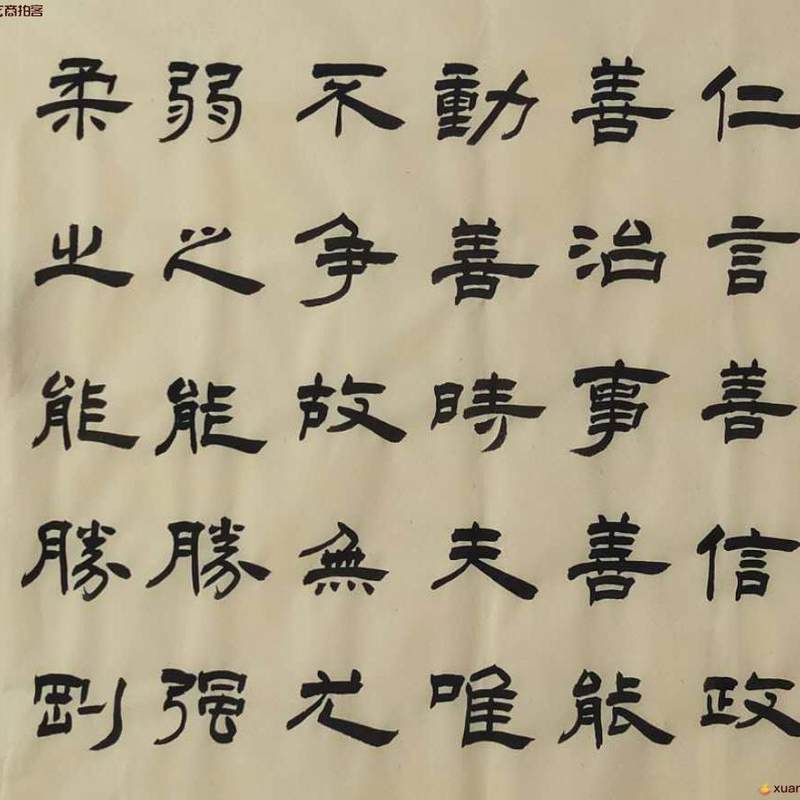 仁言善信政
善治事善能
動善時夫唯
不争故無尤
弱之能勝强
柔之能勝剛
商拍客
xuan